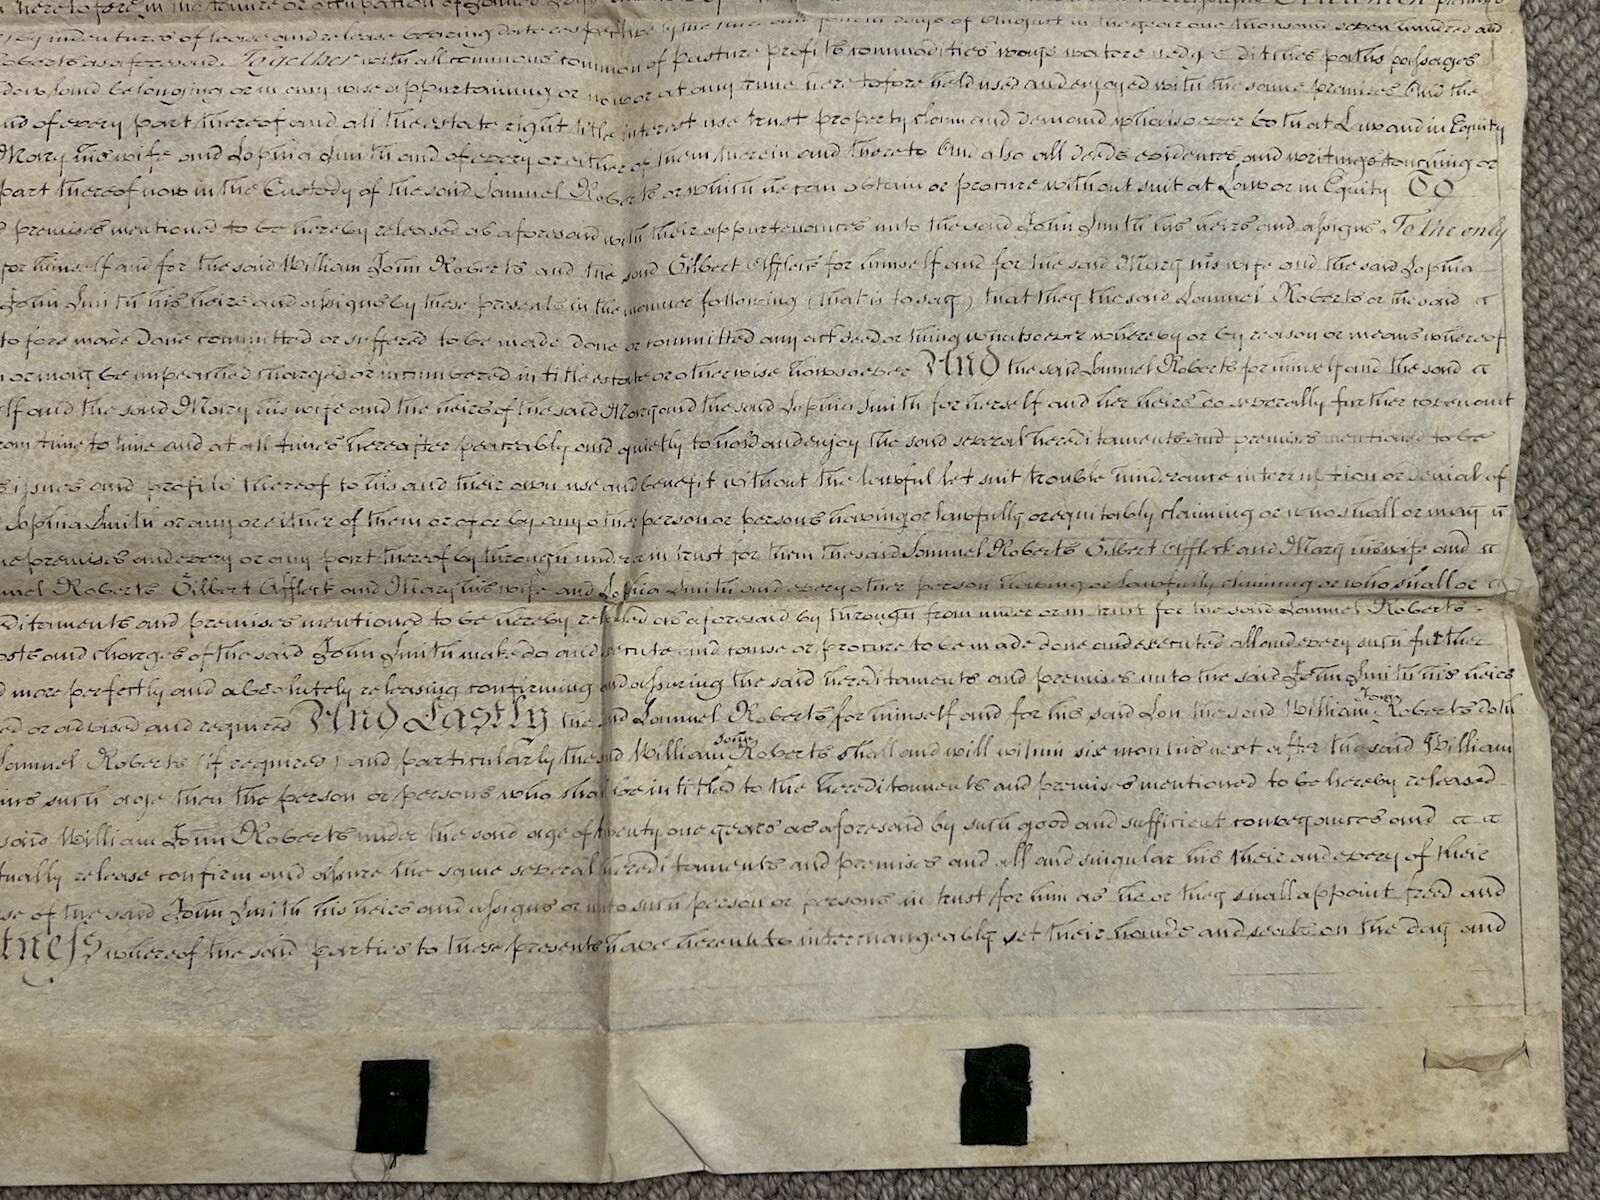 heretofore in the tenure or occupation of
by indentures of lease and release bearing date respectively the and days of August in the year one thousand seven hundred and
Roberts as aforesaid. Together with all commons common of pasture profits commodities ways waters hedges ditches paths passages
belonging or in any wise appurtaining or now or at any time heretofore held used and enjoyed with the same premises And the
and of every part thereof and all the estate right title interest use trust property claim and demand whatsoever both at Law and in Equity
Mary his wife and Sophia Smith and of every or either of them therein and thereto And also all deeds evidences and writings touching or
part thereof now in the Custody of the said Samuel Roberts or which he can obtain or procure without suit at Law or in Equity To
premises mentioned to be hereby released as aforesaid with their appurtenances unto the said John Smith his heirs and assigns To the only
for himself and for the said William John Roberts and the said Gilbert Affleck for himself and for the said Mary his wife and the said Sophia
John Smith his heirs and assigns by these presents in the manner following (that is to say) that they the said Samuel Roberts or the said
to fore made done committed or suffered to be made done or committed any act deed or thing whatsoever whereby or by reason or means whereof
or may be impeached charged or incumbered in title estate or otherwise howsoever And the said Samuel Roberts for himself and the said
self and the said Mary his wife and the heirs of the said Mary and the said Sophia Smith for herself and her heirs do severally further covenant
from time to time and at all times hereafter peaceably and quietly to hold and enjoy the said several hereditaments and premises mentioned to be
issues and profits thereof to his and their own use and benefit without the lawful let suit trouble hinderance interruption or denial of
Sophia Smith or any or either of them or of or by any other person or persons having or lawfully or equitably claiming or who shall or may
premises and every or any part thereof by through under or in trust for them the said Samuel Roberts Gilbert Affleck and Mary his wife and
Samuel Roberts Gilbert Affleck and Mary his wife and Sophia Smith and every other person having or lawfully claiming or who shall or
hereditaments and premises mentioned to be hereby released as aforesaid by through from under or in trust for the said Samuel Roberts
costs and charges of the said John Smith make do and execute and cause or procure to be made done and executed all and every such further
more perfectly and absolutely releasing confirming and assuring the said hereditaments and premises unto the said John Smith his heirs
or advised and required And Lastly the said Samuel Roberts for himself and for his said Son the said William John Roberts doth
Samuel Roberts (if required) and particularly the said William John Roberts shall and will within six months next after the said William
such age then the person or persons who shall be intitled to the hereditaments and premises mentioned to be hereby released
said William John Roberts under the said age of twenty one years as aforesaid by such good and sufficient conveyances and
release confirm and assure the same several hereditaments and premises and all and singular his their and every of their
use of the said John Smith his heirs and assigns or unto such person or persons in trust for him as he or they shall appoint freed and
whereof the said parties to these presents have hereunto interchangeably set their hands and seals on the day and